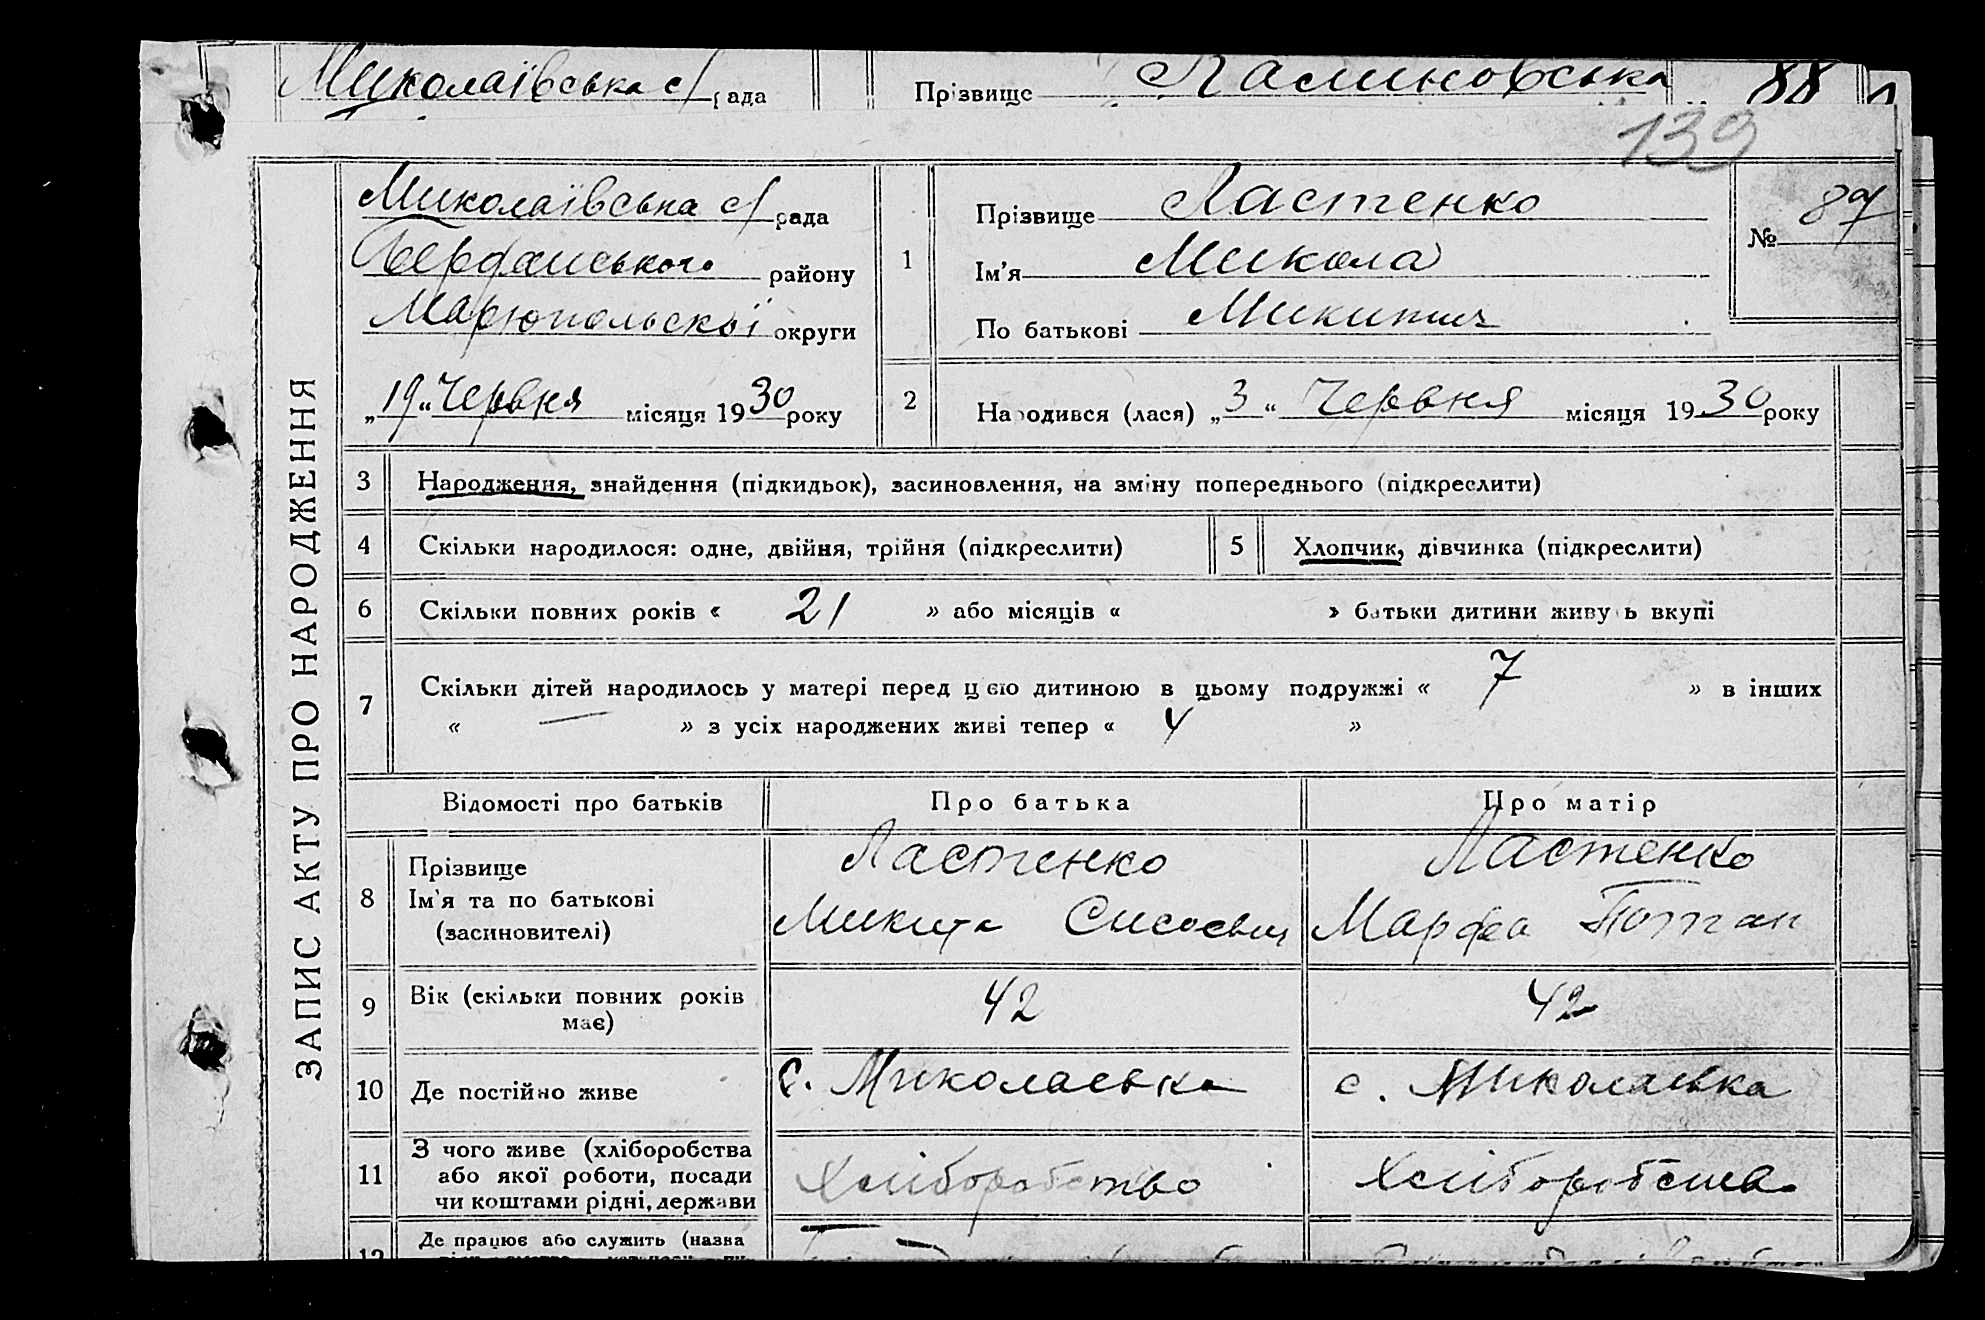 Миколаївська с/рада Прізвище Калиновська 88
139
ЗАПИС АКТУ ПРО НАРОДЖЕННЯ
Миколаївська с/рада
Бердянського району
Марюпольскої округи
„19“ Червня місяця 1930 року
1 Прізвище Ластенко
Ім’я Микола
По батькові Микитич
№ 89
2 Народився (лася) „3“ Червня місяця 1930 року
3 Народження, знайдення (підкидьок), засиновлення, на зміну попереднього (підкреслити)
4 Скільки народилося: одне, двійня, трійня (підкреслити) 5 Хлопчик, дівчинка (підкреслити)
6 Скільки повних років « 21 » або місяців « » батьки дитини живуть вкупі
7 Скільки дітей народилось у матері перед цією дитиною в цьому подружжі « 7 » в інших
« — » з усіх народжених живі тепер « 4 »
Відомості про батьків Про батька Про матір
8 Прізвище Ластенко Ластенко
Ім’я та по батькові Микита Сисоевич Марфа Потап
(засиновителі)
9 Вік (скільки повних років 42 42
має)
10 Де постійно живе с. Миколаевка с. Миколаевка
11 З чого живе (хліборобства
або якої роботи, посади Хліборобство Хліборобство
чи коштами рідні, держави
12 Де працює або служить (назва